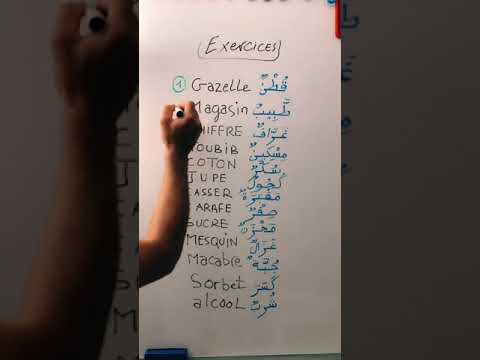 Exercices
1 Gazelle قُطْنٌ
Magasin طَبِيبٌ
CHIFFRE غَرَّافٌ
TOUBIB مِسْكِينٌ
COTON سُكَّرٌ
JUPE كُحُولٌ
CASSER مَقْبَرَةٌ
CARAFE صِفْرٌ
SUCRE مَخْزَنٌ
MESQUIN غَزَالٌ
Macabre جُبَّةٌ
Sorbet كَسَرَ
alcool شُرْبٌ